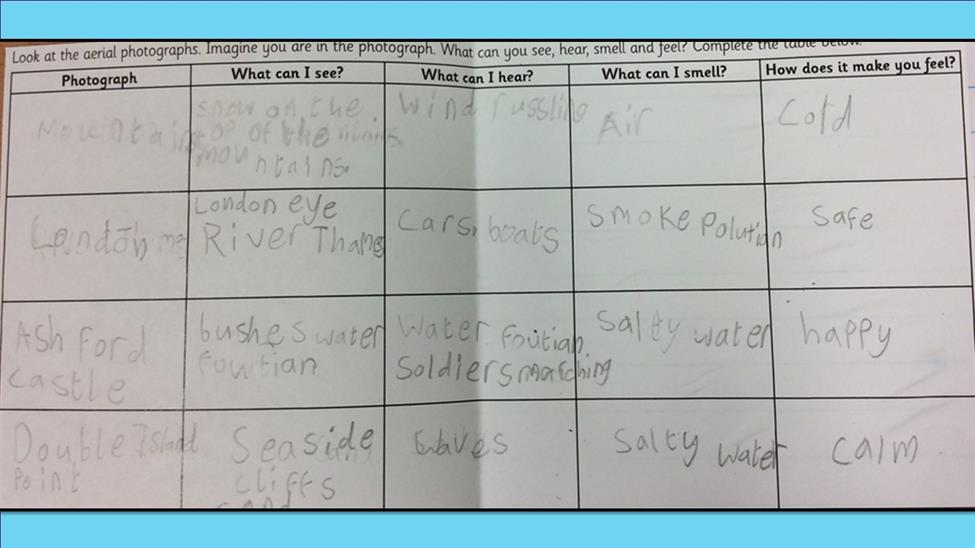 Look at the aerial photographs. Imagine you are in the photograph. What can you see, hear, smell and feel? Complete the table below.
Photograph What can I see? What can I hear? What can I smell? How does it make you feel?
Mountain
snow on the
top of the
mountains.
Wind russling
Air
Cold
London
London eye
River Thames
Cars, boats
Smoke Polution
Safe
Ash Ford
Castle
bushes water
fowtian
Water Foutian
Soldiers marching
Salty water
happy
Double Island
Point
Seaside
cliffs
Waves
Salty water
calm